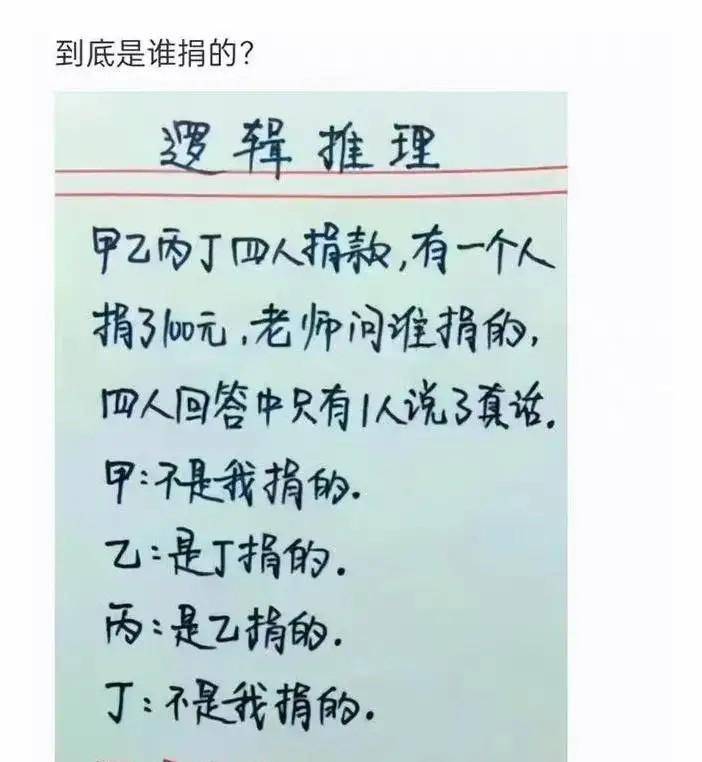 到底是谁捐的?
逻辑推理
甲乙丙丁四人捐款,有一个人
捐了100元,老师问谁捐的,
四人回答中只有1人说了真话.
甲:不是我捐的.
乙:是丁捐的.
丙:是乙捐的.
丁:不是我捐的.